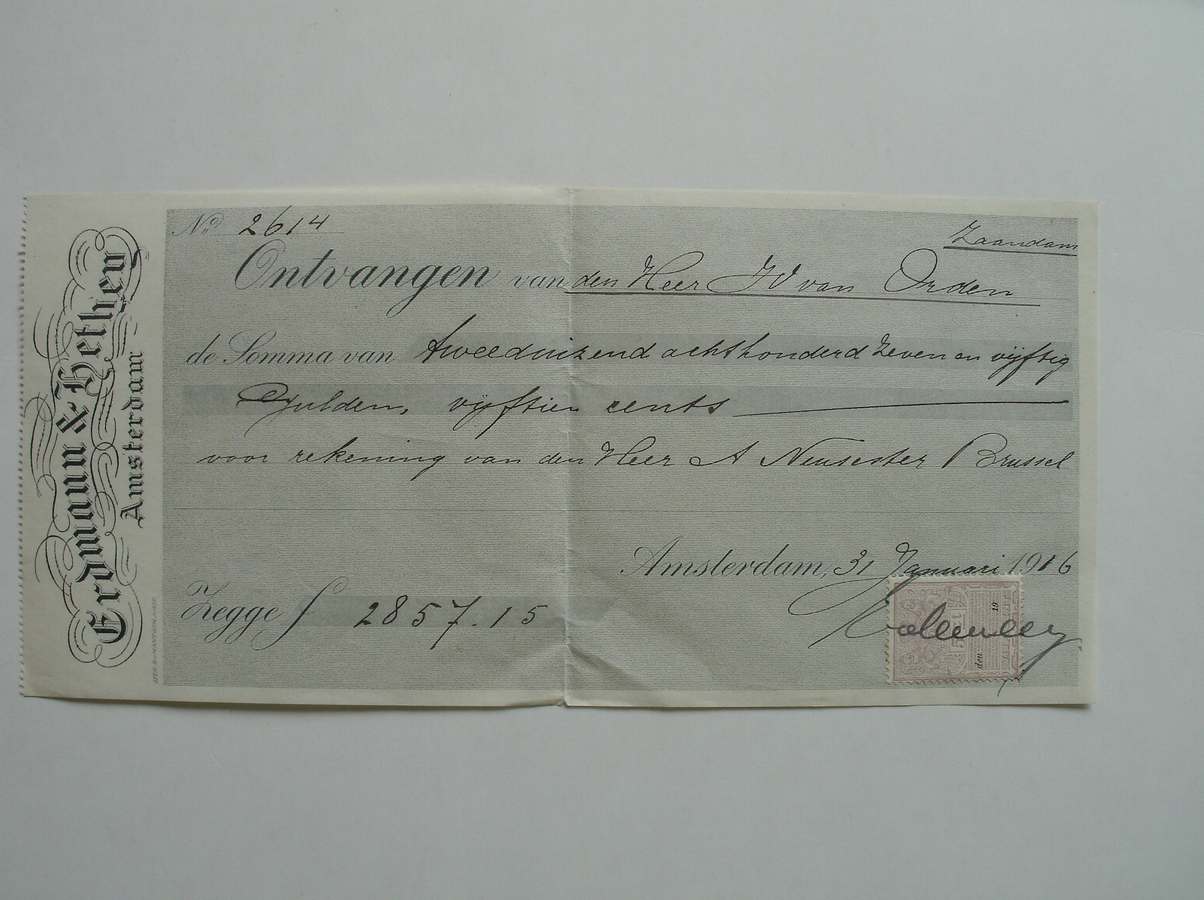 Erdmann & Hethey
Amsterdam
No 2614
Zaandam
Ontvangen van den Heer van Orden
de Somma van tweeduizend achthonderd zeven en vijftig
Gulden, vijftien cents
voor rekening van den Heer A Brussel
Amsterdam, 31 Januari 1916
Zegge f 2857.15
den 19